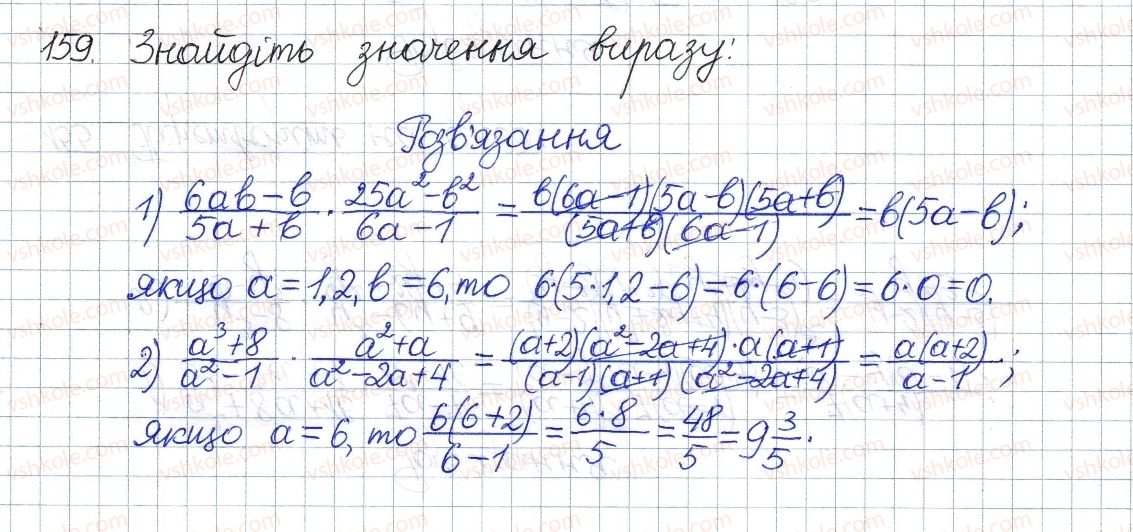 159. Знайдіть значення виразу:
Розв'язання
1) (6ab-b)/(5a+b) · (25a²-b²)/(6a-1) = (b(6a-1)(5a-b)(5a+b))/((5a+b)(6a-1)) = b(5a-b);
якщо a=1,2, b=6, то 6·(5·1,2-6)=6·(6-6)=6·0=0.
2) (a³+8)/(a²-1) · (a²+a)/(a²-2a+4) = ((a+2)(a²-2a+4)·a(a+1))/((a-1)(a+1)(a²-2a+4)) = (a(a+2))/(a-1);
якщо a=6, то (6(6+2))/(6-1) = (6·8)/5 = 48/5 = 9 3/5.